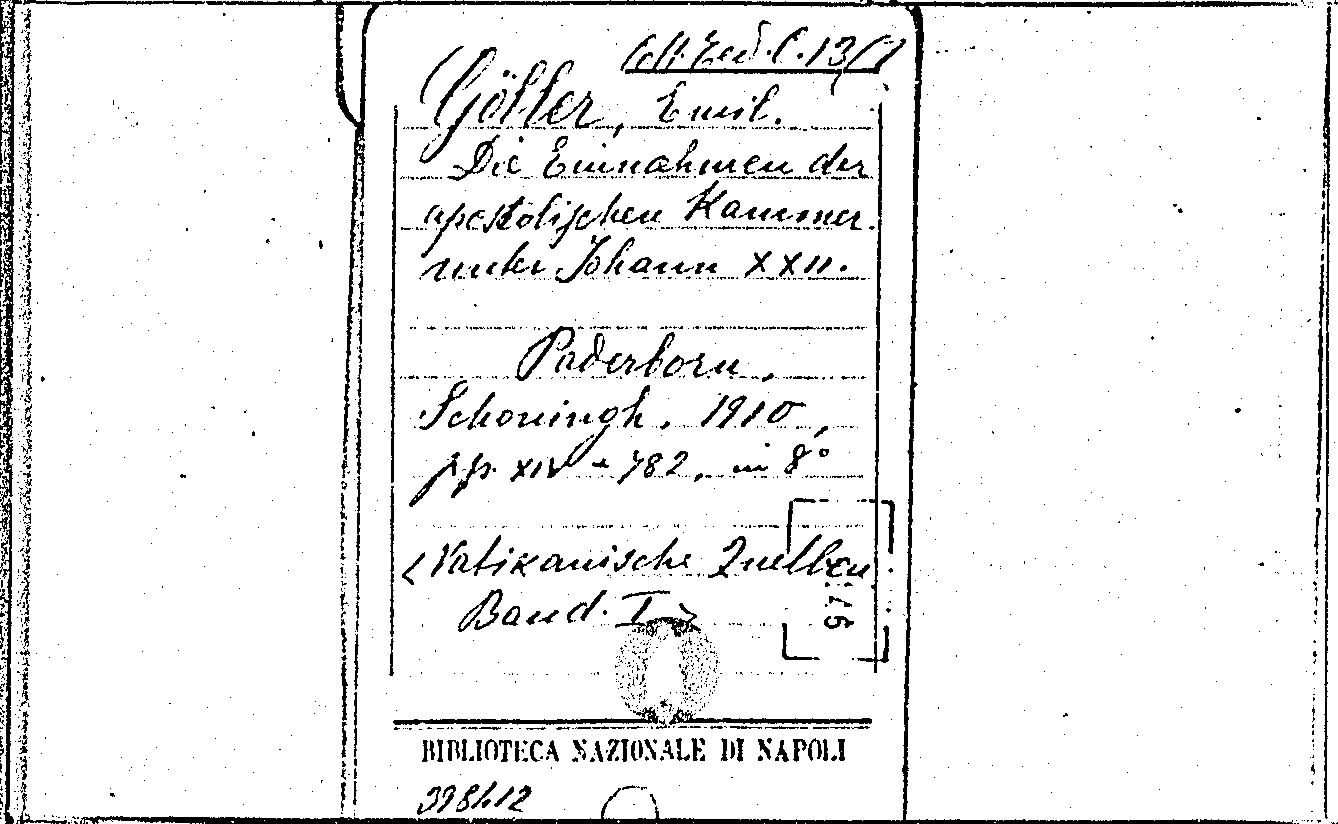 Coll. Ecd. C. 13/1
Göller, Emil.
Die Einnahmen der
apostolischen Kammer
unter Johann XXII.
Paderborn,
Schoningh, 1910,
pp. XIV - 782, in 8°
<Vatikanische Quellen
Band. I>
BIBLIOTECA NAZIONALE DI NAPOLI